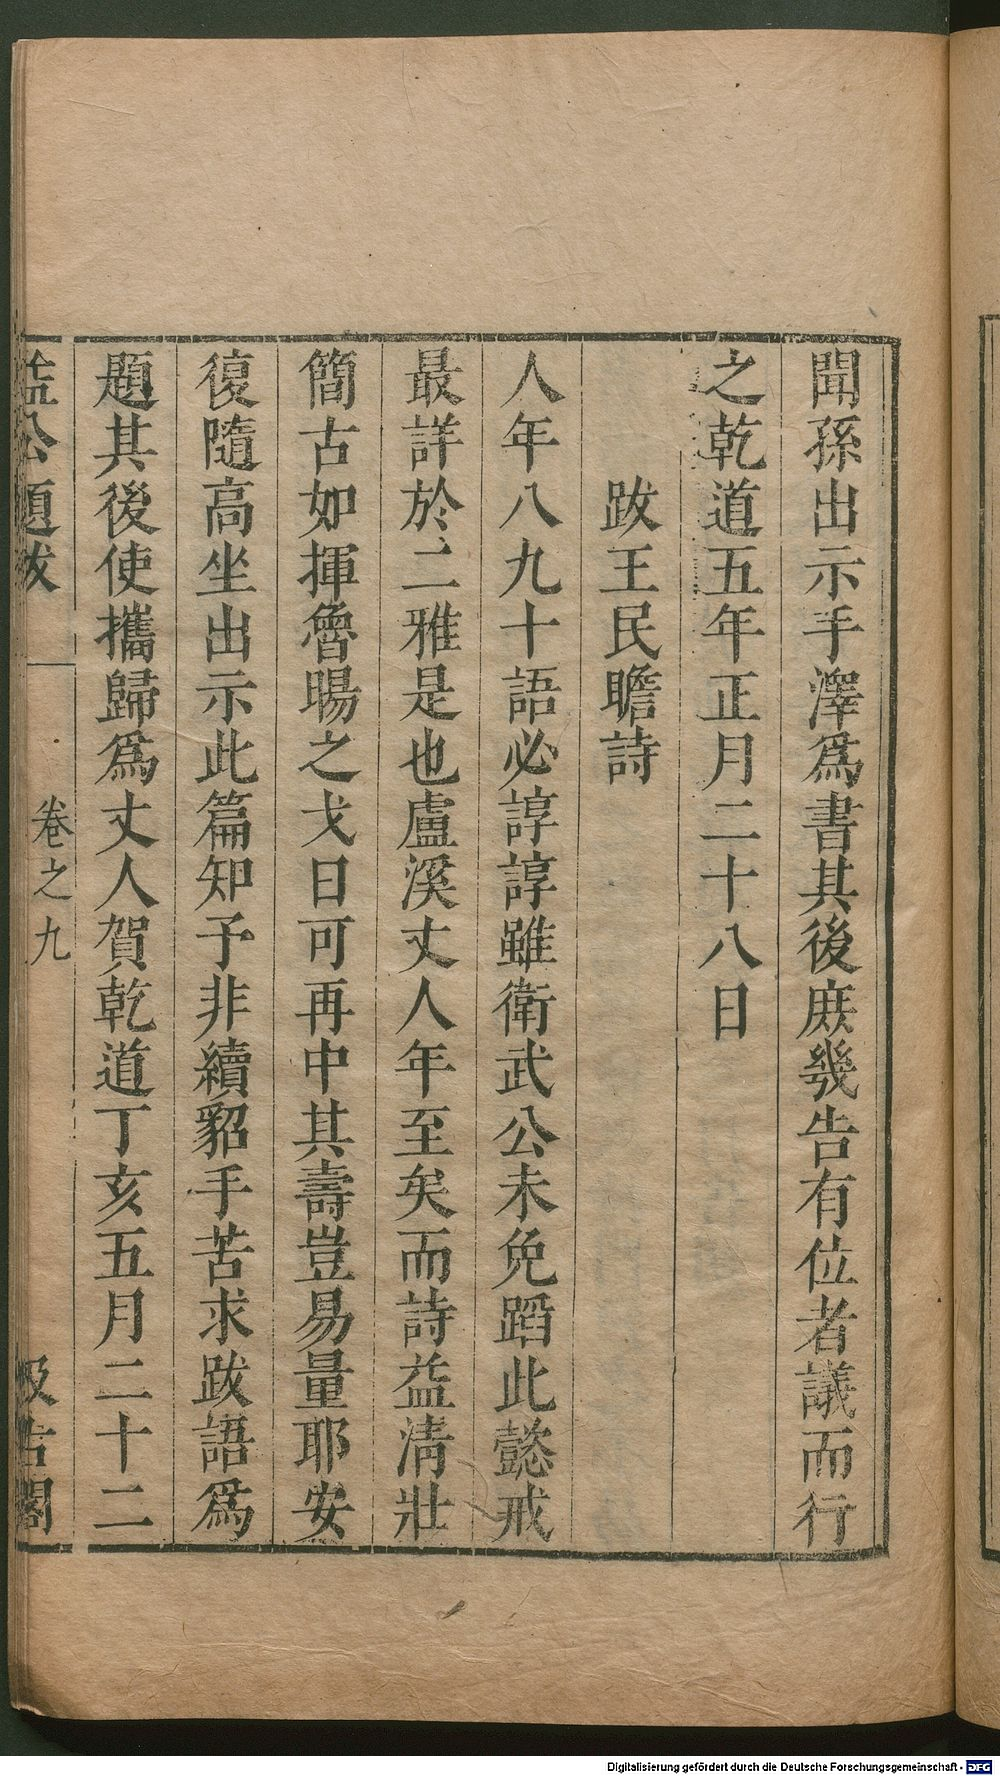 聞孫出示手澤爲書其後庻幾告有位者議而行
之乾道五年正月二十八日
跋王民瞻詩
人年八九十語必諄諄雖衛武公未免蹈此懿戒
最詳於二雅是也盧溪丈人年至矣而詩益清壯
簡古如揮魯暘之戈日可再中其壽豈易量耶安
復隨高坐出示此篇知予非續貂手苦求跋語爲
題其後使攜歸爲丈人賀乾道丁亥五月二十二
益公題跋
卷之九
汲古閣
Digitalisierung gefördert durch die Deutsche Forschungsgemeinschaft - DFG